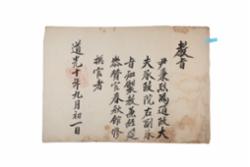 教旨
尹秉烈爲通政大
夫承政院右副承
旨知製敎兼經筵
參贊官春秋館修
撰官者
道光十年九月初一日